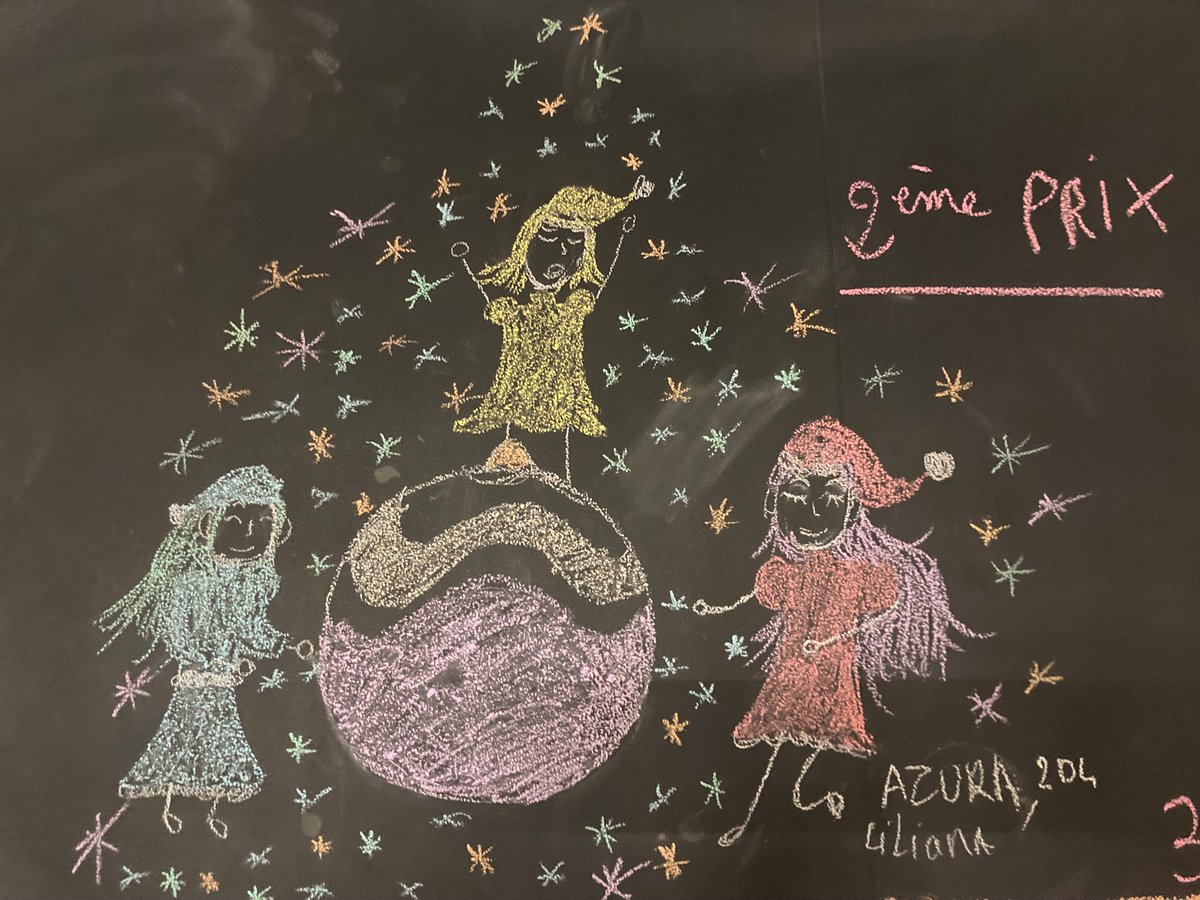 2ème PRIX
AZURA, 204
Liliana
2
3